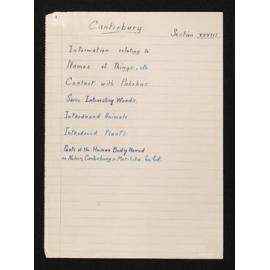 Canterbury.
Section XXVIII.
Information relating to
Names of Things, etc
Contact with Pakehas
Some Interesting Words.
Introduced Animals.
Introduced Plants.
Parts of the Human Body Named
in Nelson, Canterbury &